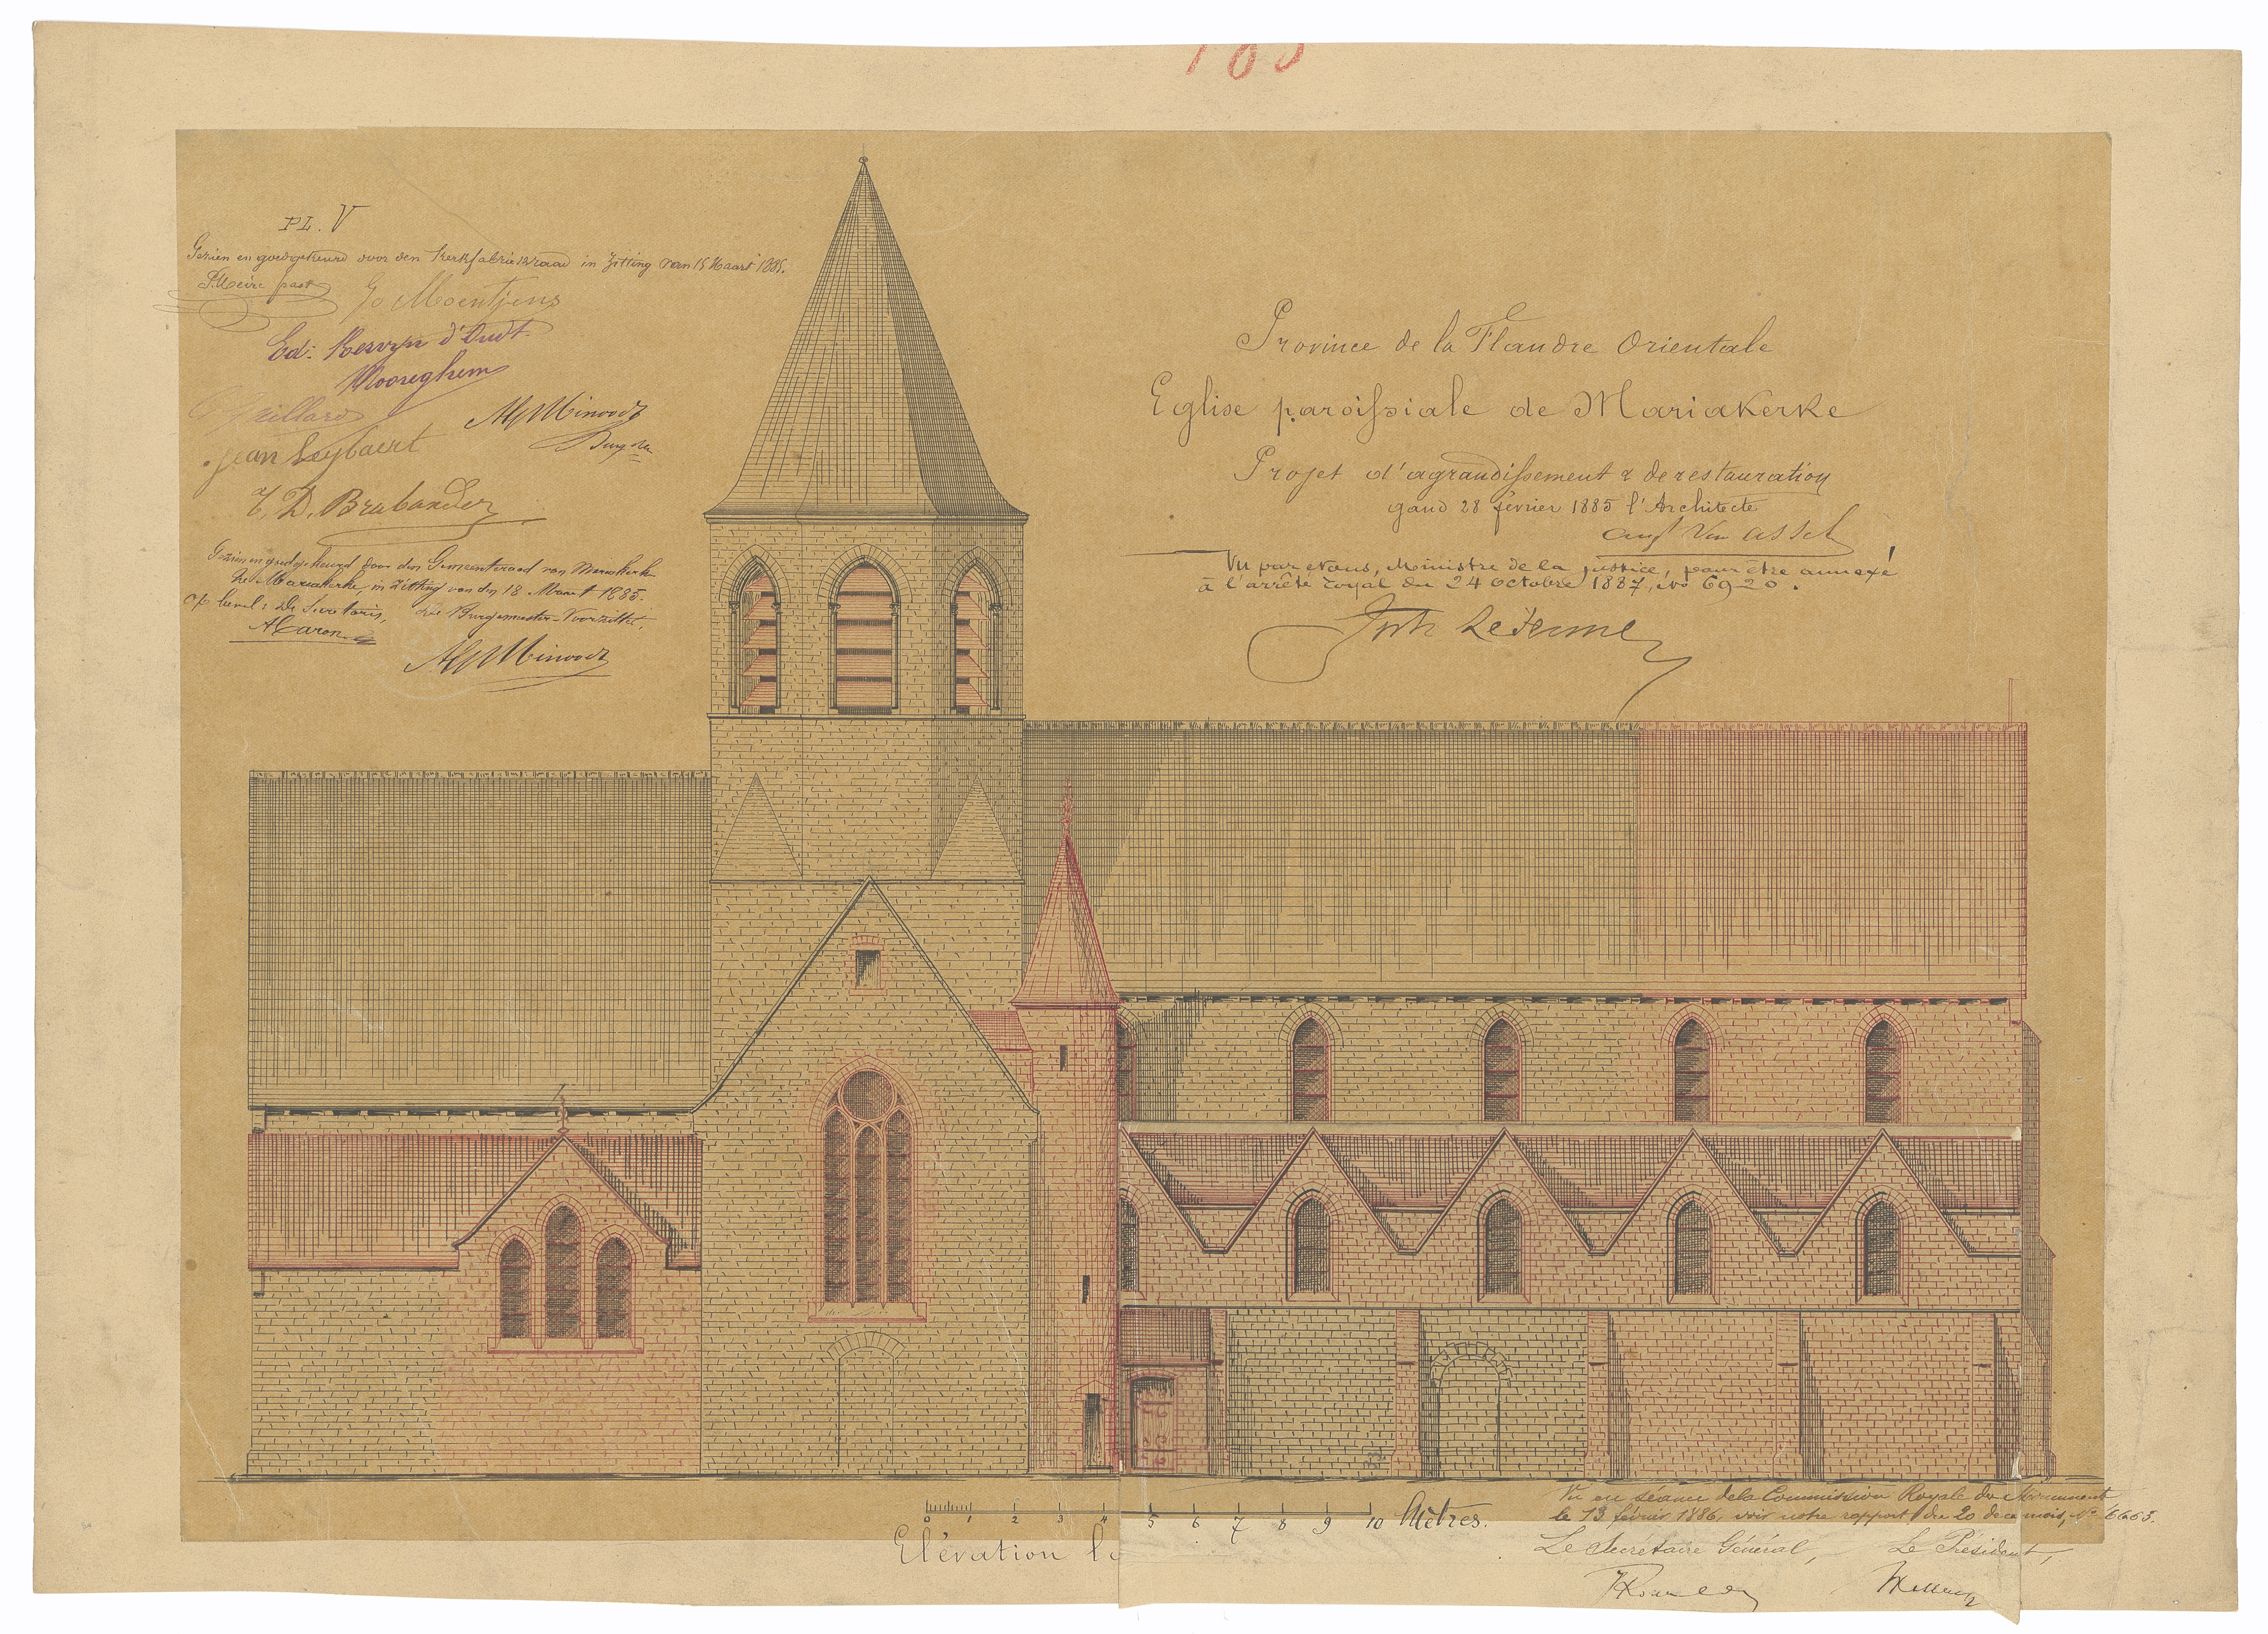 PL. V
Gezien en goedgekeurd door den Kerkfabriekraad in zitting van 15 Maart 1885.
past
Moentjens
Ed: Kervyn d'Oudt-
Mooreghem
Jean Seybaert
D. Brabander
Gezien en goedgekeurd door den Gemeenteraad van Mariakerke
te Mariakerke, in zitting van den 18 Maart 1885.
op bevel: De Secretaris, De Burgemeester-Voorzitter,
Province de la Flandre Orientale
Eglise paroissiale de Mariakerke
Projet d'agrandissement & de restauration
gand 28 février 1885 l'Architecte
aug Van assche
Vu par Nous, Ministre de la justice, pour être annexé
à l'arrêté royal du 24 Octobre 1887, No 6920.
Le Jeune
0 1 2 3 4 5 6 7 8 9 10 Mètres.
Elévation
Vu en séance de la Commission Royale des Monuments
le 13 février 1886, voir notre rapport du 20 de ce mois, No
Le Secrétaire Général, Le Président,